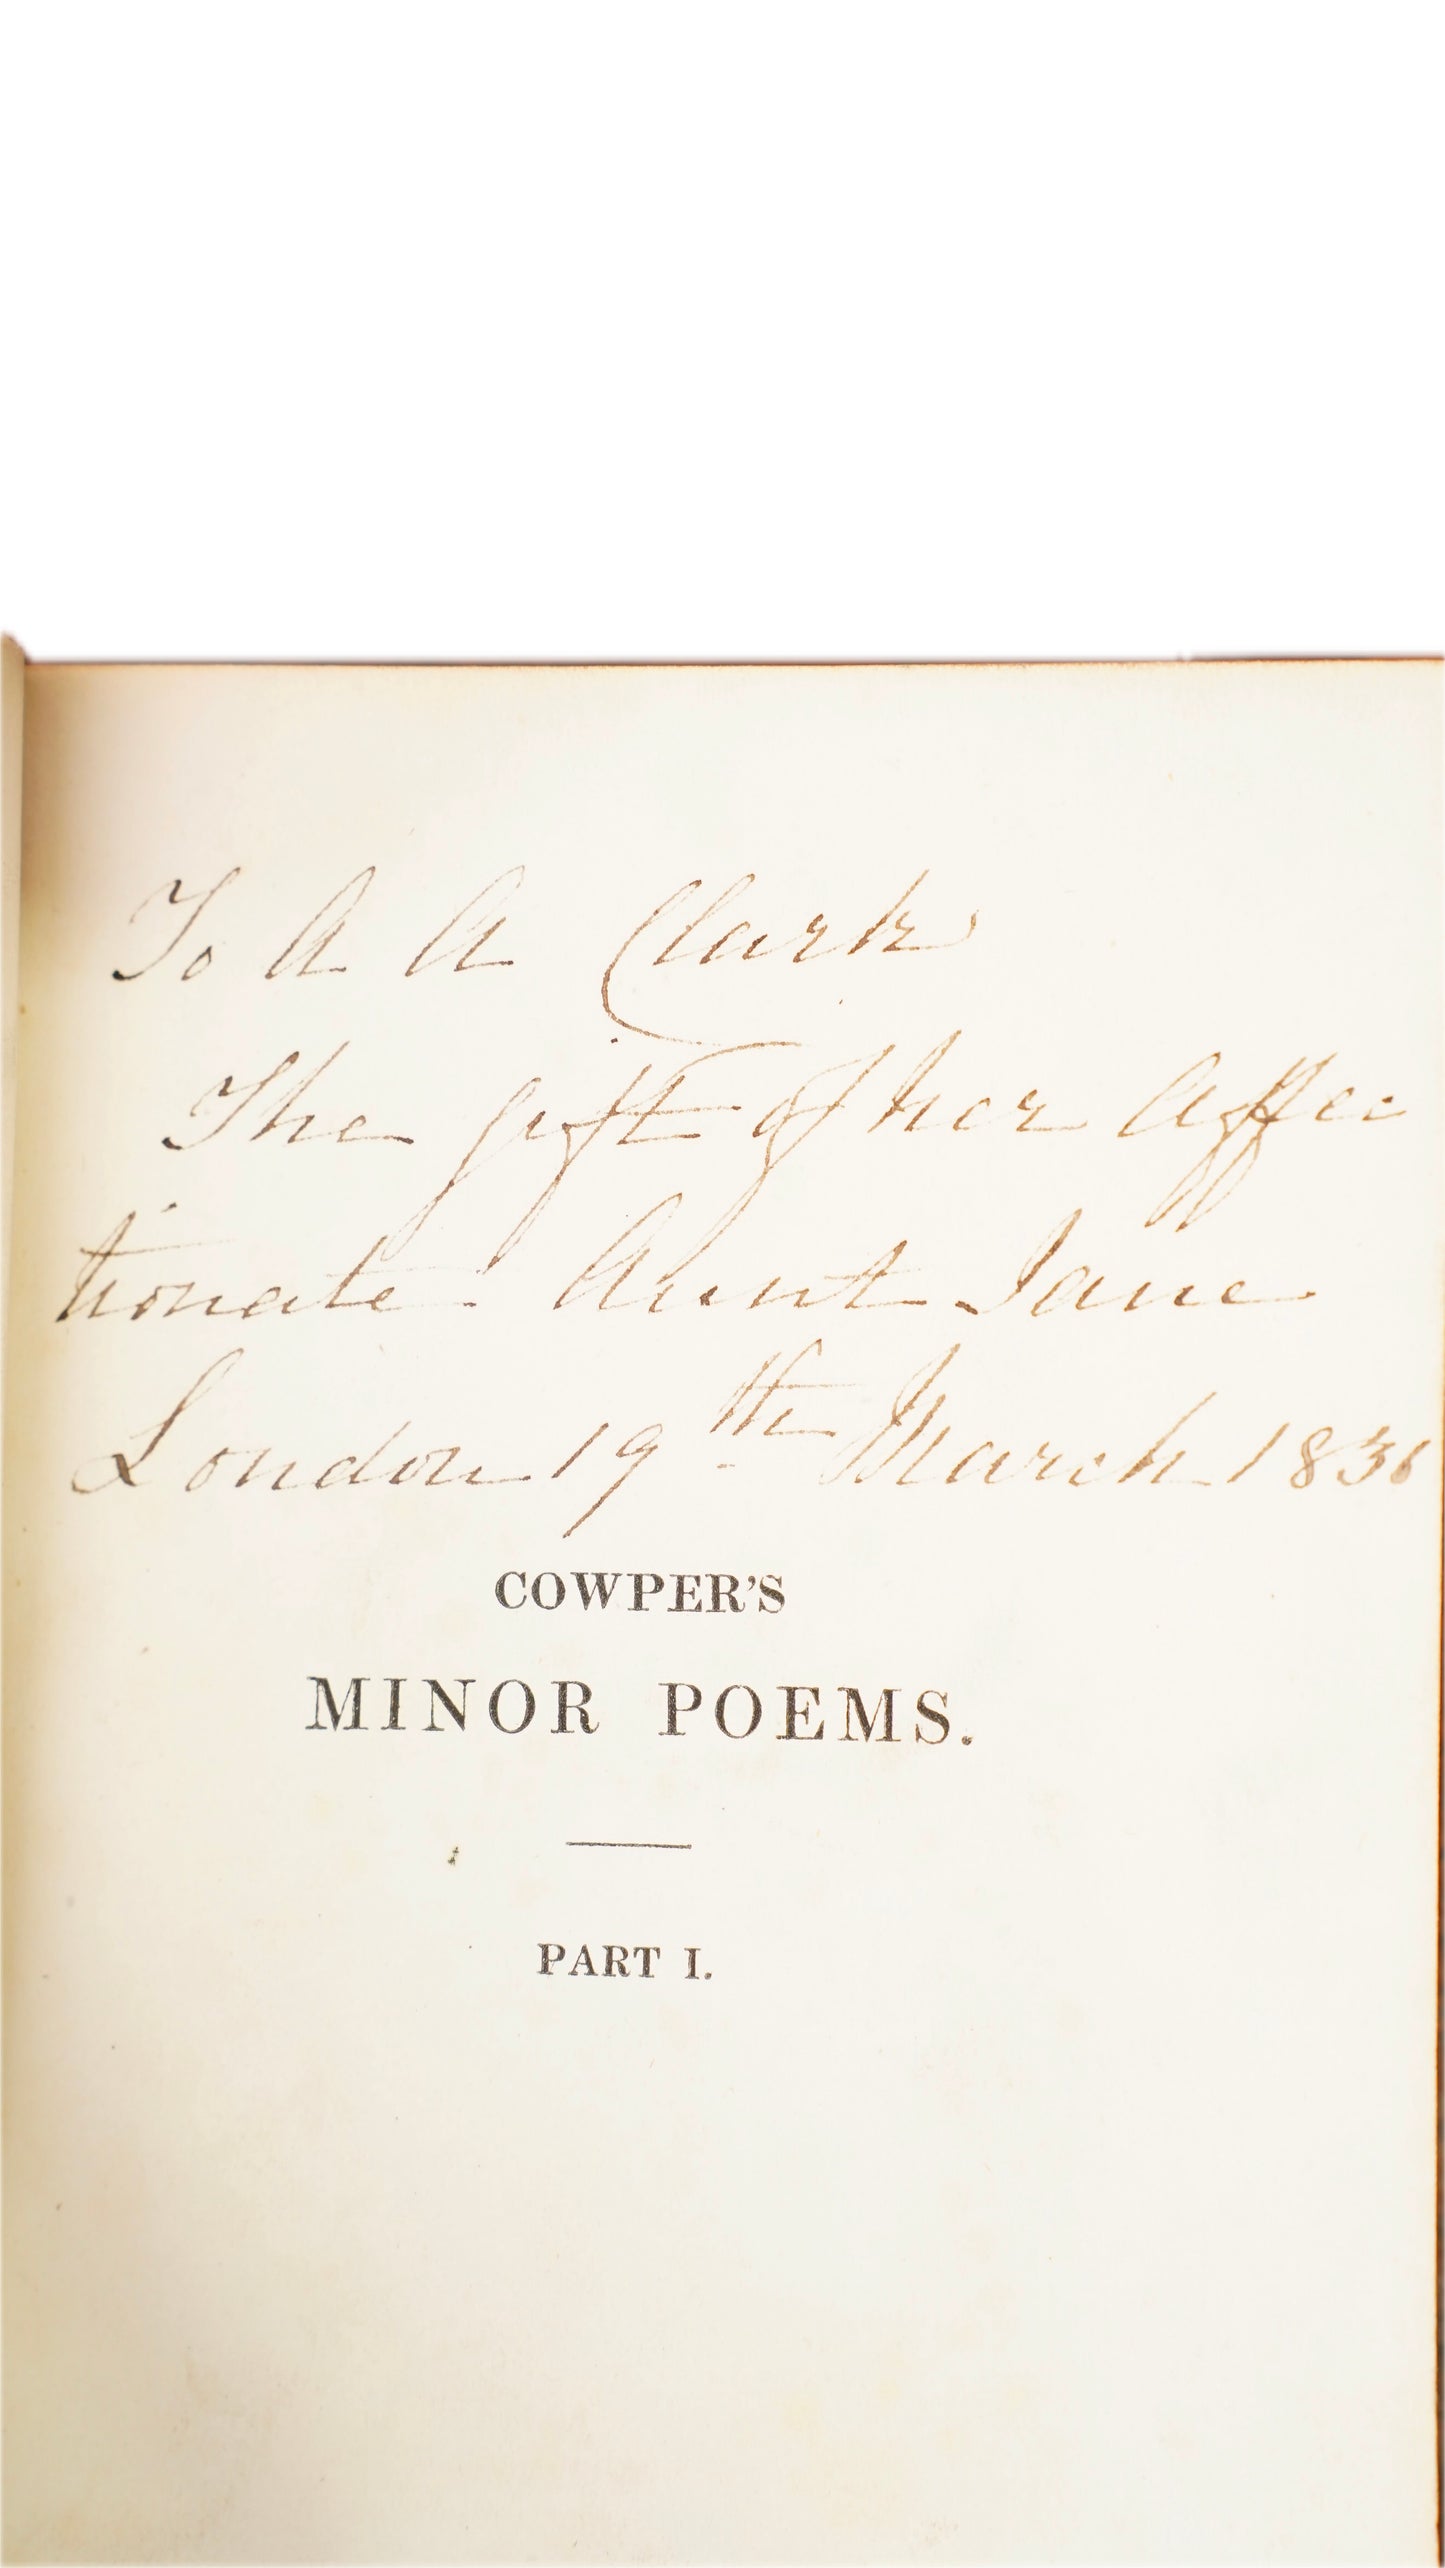 To A A Clark
The gift of her Affec
tionate Aunt Jane
London 19th March 1836
COWPER'S
MINOR POEMS.
PART I.